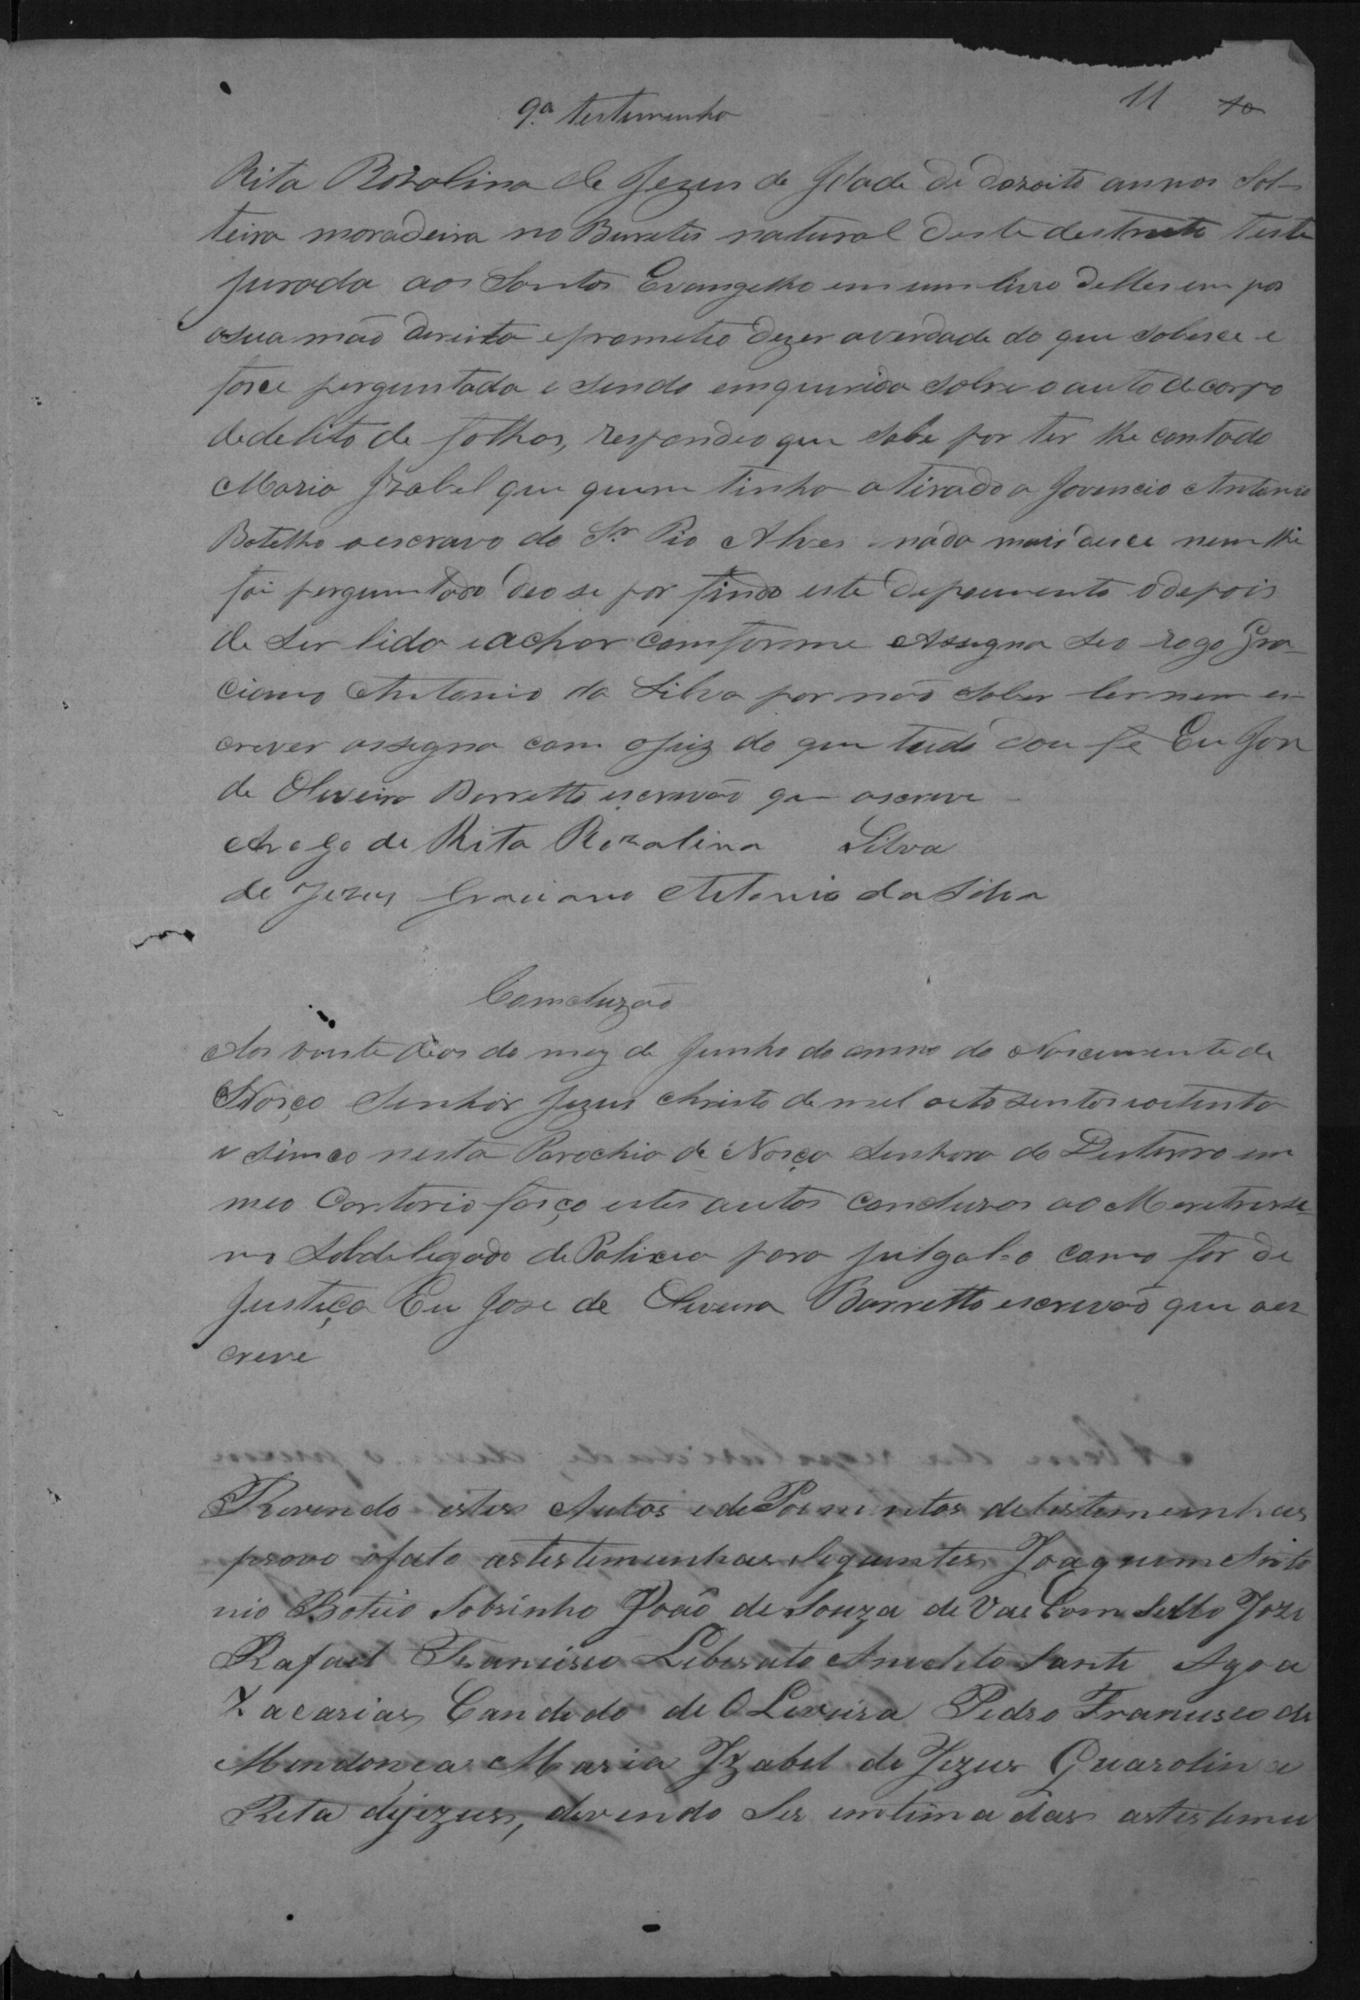 11 10
9.ª testemunho
Rita Rozolina de Jezus de Idade de dozoito annos Sol-
teira moradeira no Buretis natural deste destrito teste
jurada aos Santos Evangelho em um livro delles em pos
a sua mão direita e prometio dizer a verdade do que sobesce e
fosce perguntada e sendo emquerida sobre o auto de corpo
de delito de folhas, respondeo que sabe por ter lhe contado
Maria Izabel que quem tinha atirado a Jovencio Antonio
Botelho o escravo do Sr. Pio Alves nada mais disce nem lhe
foi perguntado deo se por findo este depoemento e depois
de ser lido e achar comforme Assigna seo rogo Gra-
ciano Antonio da Silva por não saber ler nem es-
crever assigna com o juiz do que tudo dou fé Eu Joze
de Oliveira Barretto escrivão que escreve
A rogo de Rita Rozalina Silva
de Jezus Graciano Antonio da Silva
Comcluzão
Aos vinte dias do mez de Junho do anno do Nascemento de
Nosço Senhor Jezus Christo de mil oito sentos e oitenta
e simco nesta Parochia de Nosça Senhora do Desterro em
meo Cartorio fasço estes autos concluzos ao Meretissi-
mo Sobdelegado de Policia para julgal-o como for de
Justiça Eu Joze de Oliveira Barretto escrivão que aes
creve
Revendo estes Autos e de Poimentos detestemunhas
provo ofato astestemunhas seguintes Joaquim Anto
nio Boteio Sobrinho João de Souza de Vas Comsello Joze
Rafael Francisco Liberato Anecleto Santi Agoa
Zacarias Candido de OLiveira Pedro Francisco de
Mendonça Maria Izabel de Jezus Guarolina
Reta dejezus, devendo Ser emtimadas astestemu